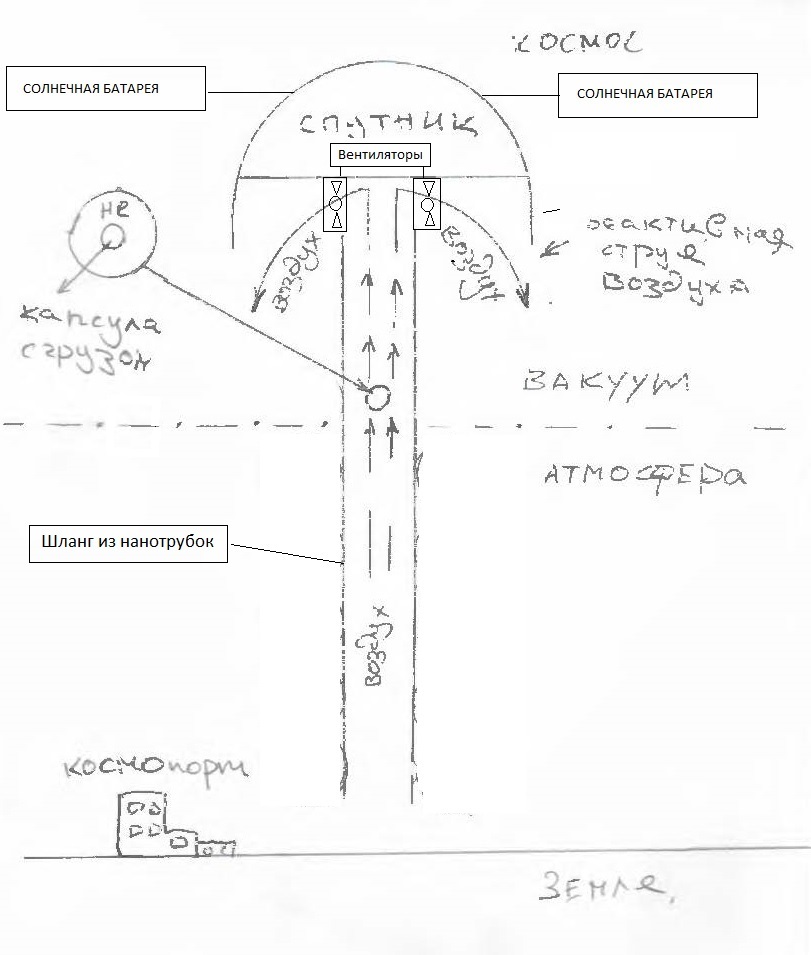 КОСМОС
СОЛНЕЧНАЯ БАТАРЕЯ
СОЛНЕЧНАЯ БАТАРЕЯ
СПУТНИК
Вентиляторы
не
реактивная
струя
воздуха
воздух
воздух
капсула
с грузом
ВАКУУМ
АТМОСФЕРа
Шланг из нанотрубок
воздух
космопорт
Земля.